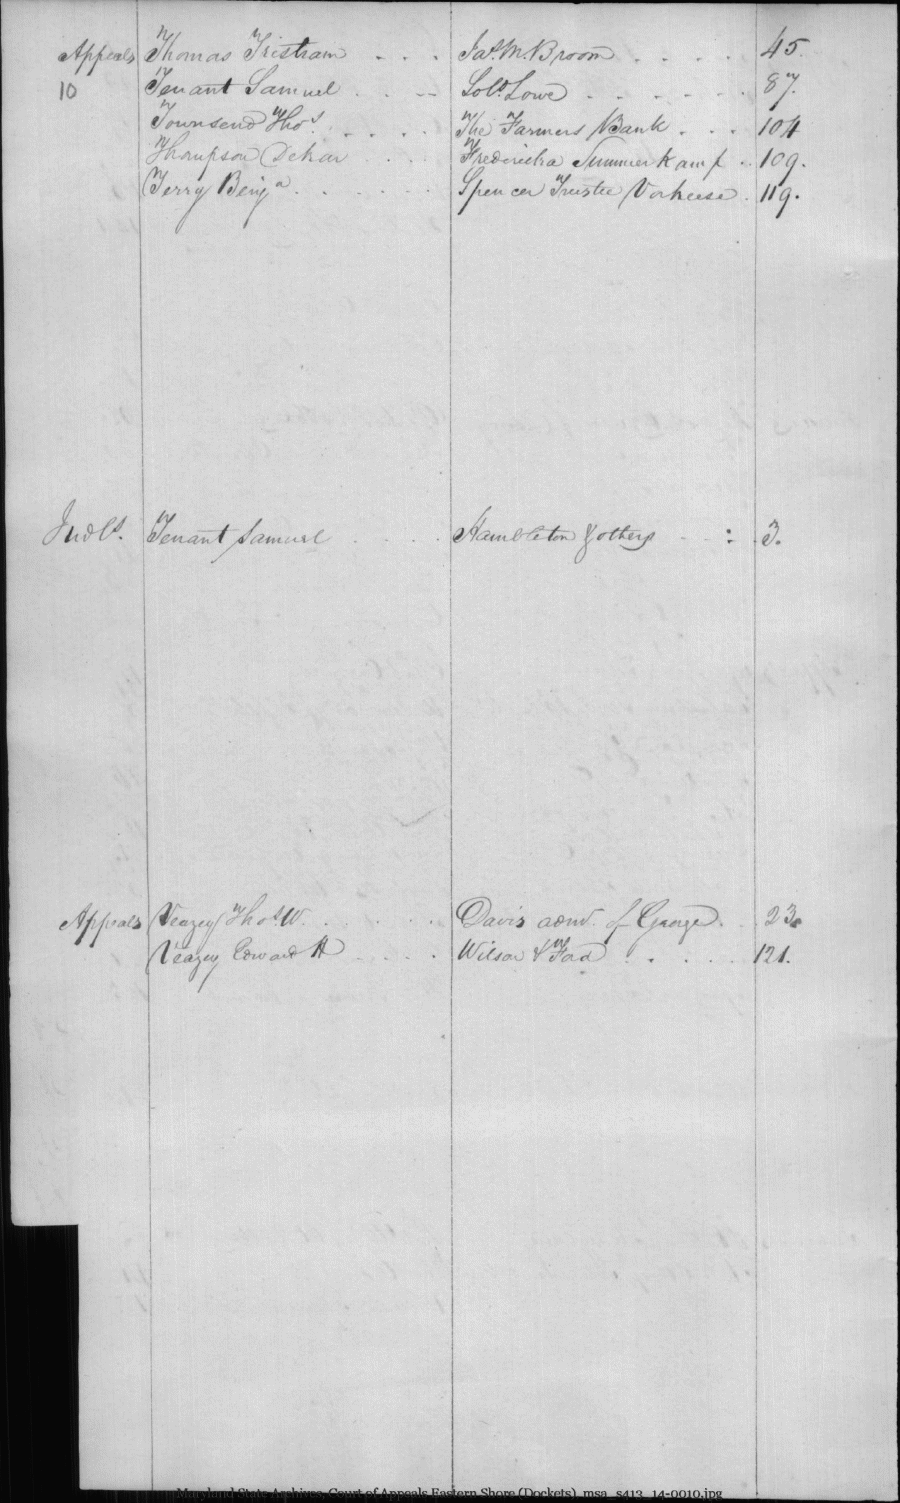 Appeals Thomas Tristram . . . Jas. M. Broom . . . . 45.
10 Tenant Samuel . . -- Solo. Lowe . . . . . . 87.
Townsend Thos. . . . . The Farmers Bank . . . 104
Thompson . . . . Summerkamp . . 109.
Terry Benja . . . . . . Spencer Trustee . 119.
Judts. Tenant Samuel . . . . Hambleton & others - - : 3.
Appeals Veazey Thos. W. . . . . . Davis admr. of George . . 23.
Veazey Edward A . . . . Wilson & Ford . . . . . 121.
Maryland State Archives, Court of Appeals Eastern Shore (Dockets), msa_s413_14-0010.jpg